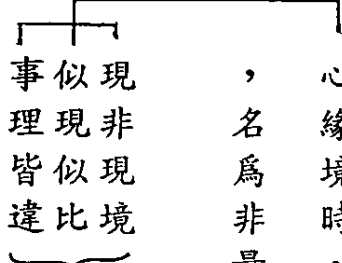 心緣境時，
，名為非量
現非現境
似現似比
事理皆違